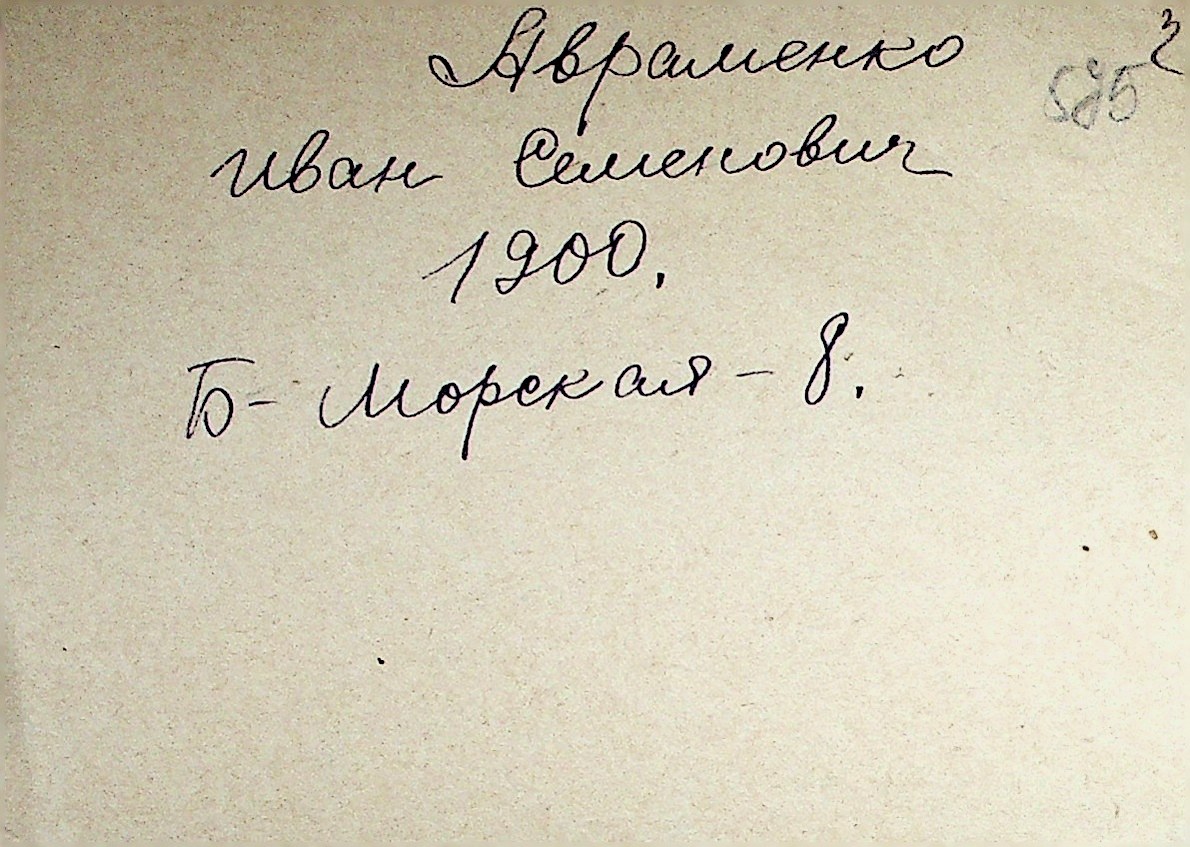 Авраменко
Иван Семенович
1900.
Б- Морская - 8.